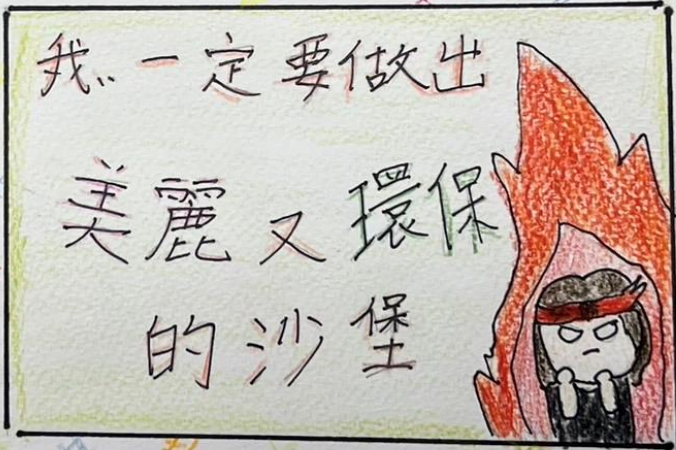 我..一定要做出
美麗又環保
的沙堡